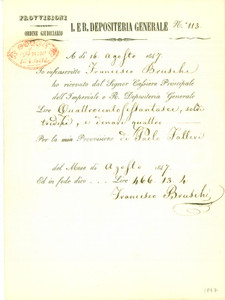 PROVVISIONI
ORDINE GIUDICIARIO
I. E R. DEPOSITERIA GENERALE
N.° 113
A dì 16 Agosto 1847
Io infrascritto Francesco
ho ricevuto dal Signor Cassiere Principale
dell'Imperiale e R. Depositeria Generale
Lire Quattrocentosessantasei, soldi
tredici, e denari quattro
Per la mia Provvisione di
del Mese di Agosto 1847.
Ed in fede dico Lire 466. 13. 4
Francesco